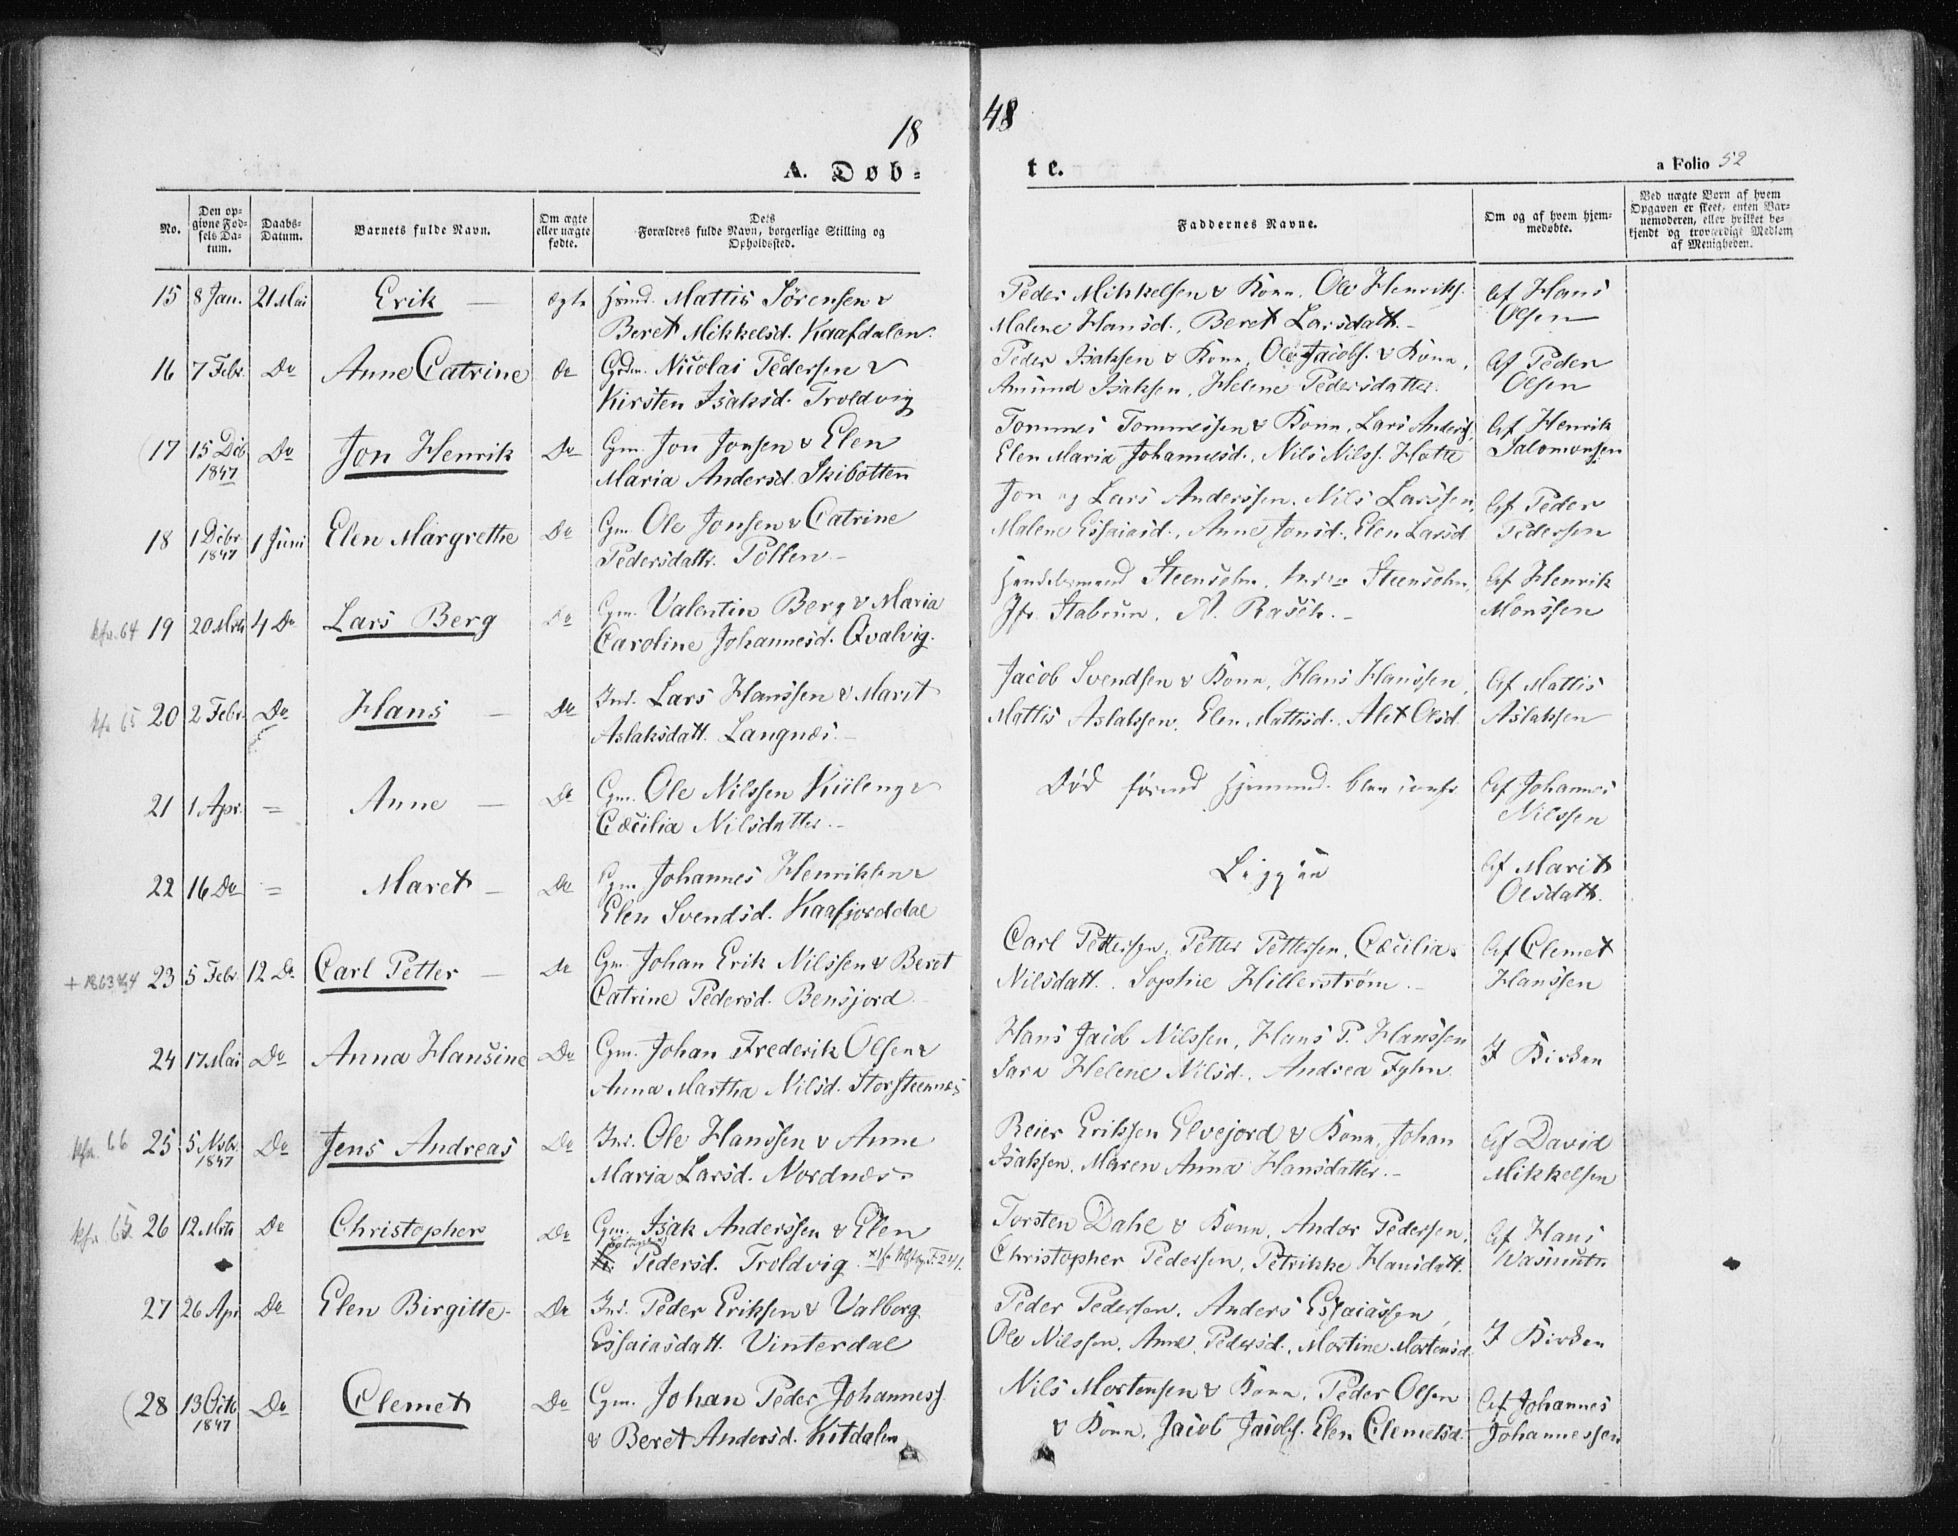 1848
A. Døbte.
a Folio 52
No. | Den opgivne Fødsels Datum. | Daabs-Datum. | Barnets fulde Navn. | Om ægte eller uægte fødte. | Dets Forældres fulde Navn, borgerlige Stilling og Opholdssted. | Faddernes Navne. | Om og af hvem hjemmedøbte. | Ved uægte Børn af hvem Opgaven er skeet, enten Barnemoderen, eller hvilket bekjendt og troværdigt Medlem af Menigheden.
15 | 8 Jan. | 21 Mai | Erik | ægte | Mattis Sørensen & | Peder Mikkelsen & Kone, Ole Henriks. | Af Hans
Beret Mikkelsd. Kaafdalen. | Malene Hansd., Beret Larsdattr. | Olsen
16 | 7 Febr. | Do | Anne Catrine | Do | Nicolai Pedersen & | Peder Isaksen & Kone, Ole Jacobs. & Kone, | Af Peder
Kirsten Isaksd. Troldvig | Amund Isaksen, Helene Pedersdatter. | Olsen
17 | 15 Dcb. 1847 | Do | Jon Henrik | Do | Gm. Jon Jonsen & Elen | Tommes Tommessen & Kone, Lars Anders., | Af Henrik
Maria Andersd. Skibotten | Elen Maria Johannesd., Nils Nilss. Hatte | Salomonsen
18 | 1 Dcbr 1847 | 1 Juni | Elen Margrethe | Do | Gm. Ole Jonsen & Catrine | Jon og Lars Anderssen, Nils Larssen, | Af Peder
Pedersdattr. Pollen | Malene Essaiasd., Anne Jonsd., Elen Larsd. | Pedersen
kfr. 64 | 19 | 20 Mrts | 4 Do | Lars Berg | Do | Gm. Valentin Berg & Maria | Handelsmand Steensohn, Steensohn, | Af Henrik
Caroline Johannesd. Qvalvig. | Jfr. Stabrun, A. Rasch. | Monssen
kfr 65 | 20 | 2 Febr. | Do | Hans | Do | Ind. Lars Hanssen & Marit | Jacob Svendsen & Kone, Hans Hanssen, | Af Mattis
Aslaksdatt. Langnæs. | Mattis Aslaksen, Elen Mattisd., Alet Olsd. | Aslaksen
21 | 1 Apr. | = | Anne | Do | Gm. Ole Nilssen Kiileng & | Død førend Hjemmed. blev | Af Johannes
Cæcilia Nilsdatter. | Nilssen
22 | 16 Do | = | Maret | Do | Gm. Johannes Henriksen & | Ligesaa | Af Marit
Elen Svendsd. Kaafjorddal | Olsdattr.
+ 1863 | 23 | 5 Febr | 12 Do | Carl Petter | Do | Gm. Johan Erik Nilssen & Beret | Carl Pettersen, Petter Pettersen, Cæcilia | Af Clemet
Catrine Pedersd. Bensjord | Nilsdatt., Sophie Hillerstrøm. | Hanssen
24 | 17 Mai | Do | Anna Hansine | Do | Gm. Johan Frederik Olsen & | Hans Jacob Nilssen, Hans P. Hanssen | I Kirken
Anna Martha Nilsd. Storsteennæs | Sara Helene Nilsd., Andrea Fyhn
kfr. 66 | 25 | 5 Nvbr. 1847 | Do | Jens Andreas | Do | Ind. Ole Hanssen & Anne | Reier Erikssen Elvejord & Kone, Johan | Af David
Maria Larsd. Nordnæs. | Isaksen, Maren Anna Hansdatter. | Mikkelsen
kfr 65 | 26 | 12 Mrts | Do | Christopher | Do | Gm. Isak Anderssen & Elen | Torsten Dahl & Kone, Andor Pedersen, | Af Hans
Pedersd. Troldvig. | Christopher Pedersen, Petrikke Hansdatt. | Wasmuth
27 | 26 Apr | Do | Elen Birgitte | Do | Ind. Peder Eriksen & Valborg | Peder Pedersen, Anders Essaiassen, | I Kirken
Essaiasdatt. Vinterdal | Ole Nilssen, Anne Pedersd., Martine Mortensd.
28 | 13 Octo 1847 | Do | Clemet | Do | Gm. Johan Peder Johanness. | Nils Mortensen & Kone, Peder Olsen | Af Johannes
& Beret Andersd. Kitdalen | & Kone, Jacob Jacobs. Elen Clemetsd. | Johannessen